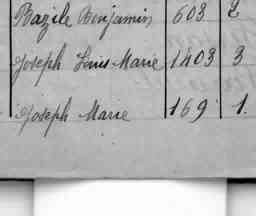 Bazile Benjamin 603 2
Joseph Louis Marie 1403 3
Joseph Marie 169 1.